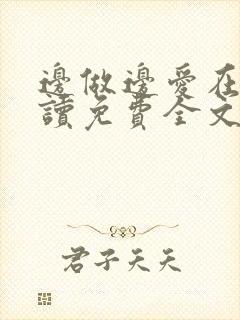 邊做邊愛在
讀免費全文
君子天天